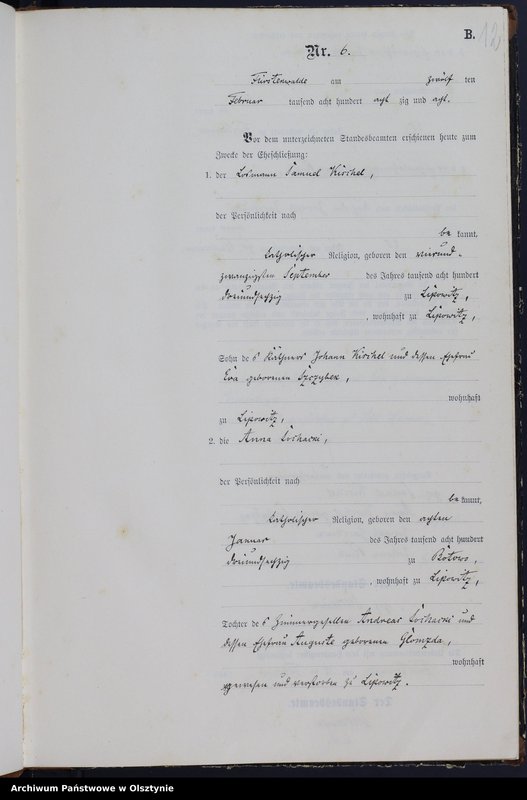 B.
Nr. 6.
Fürstenwalde am zwölf ten
Februar tausend acht hundert acht zig und acht.
Vor dem unterzeichneten Standesbeamten erschienen heute zum
Zwecke der Eheschließung:
1. der Losmann Samuel Kischel,
der Persönlichkeit nach
be kannt,
katholischer Religion, geboren den vierund-
zwanzigsten September des Jahres tausend acht hundert
dreiundsechzig zu Lipowitz,
, wohnhaft zu Lipowitz,
Sohn des Käthners Johann Kischel und dessen Ehefrau
Eva geborenen
wohnhaft
zu Lipowitz,
2. die Anna
der Persönlichkeit nach
be kannt,
katholischer Religion, geboren den achten
Januar des Jahres tausend acht hundert
dreiundsechzig zu
, wohnhaft zu Lipowitz,
Tochter des Zimmergesellen Andreas und
dessen Ehefrau Auguste geborenen
wohnhaft
gewesen und verstorben zu Lipowitz.
Archiwum Państwowe w Olsztynie